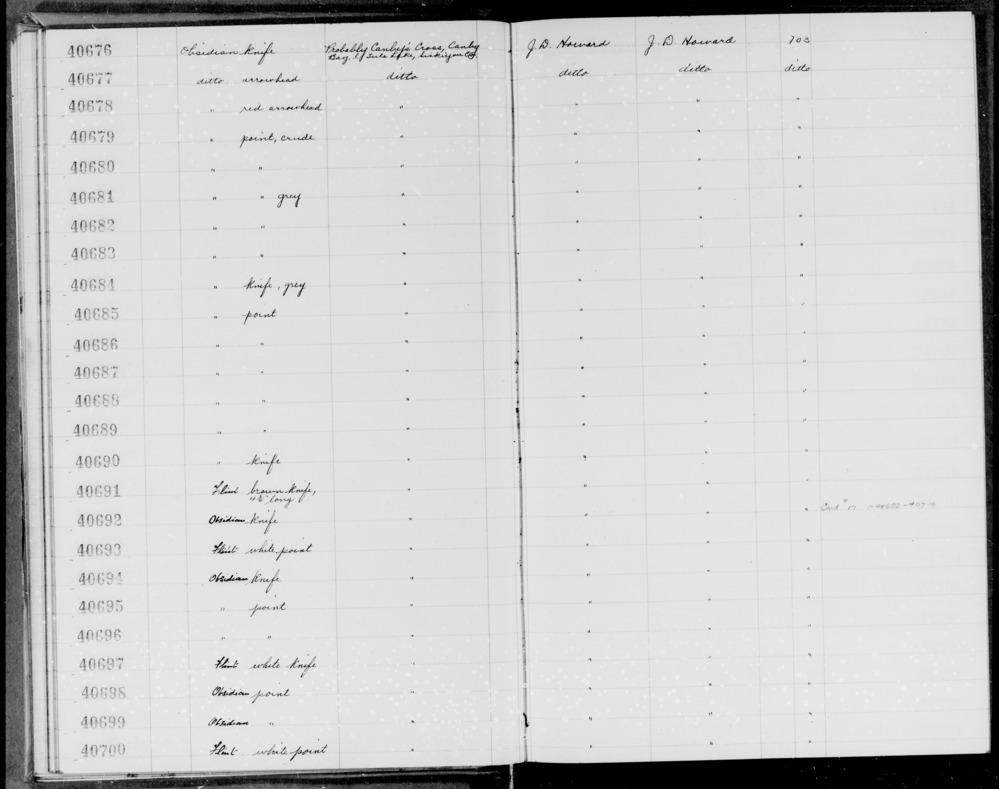 40676 Obsidian knife Probably Canby's Cross, Canby J. D. Howard J. D. Howard 703
Bay of Tule Lake, Siskiyou Co.
40677 ditto arrowhead ditto ditto ditto ditto
40678 " red arrowhead " " " "
40679 " point, crude " " " "
40680 " " " " " "
40681 " " grey " " " "
40682 " " " " " "
40683 " " " " " "
40684 " knife, grey " " " "
40685 " point " " " "
40686 " " " " " "
40687 " " " " " "
40688 " " " " " "
40689 " " " " " "
40690 " knife " " " "
40691 Flint brown knife, " " " "
long
40692 Obsidian knife " " " " Card # 17
40693 Flint white point " " " "
40694 Obsidian knife " " " "
40695 " point " " " "
40696 " " " " " "
40697 Flint white knife " " " "
40698 Obsidian point " " " "
40699 Obsidian " " " " "
40700 Flint white point " " " "